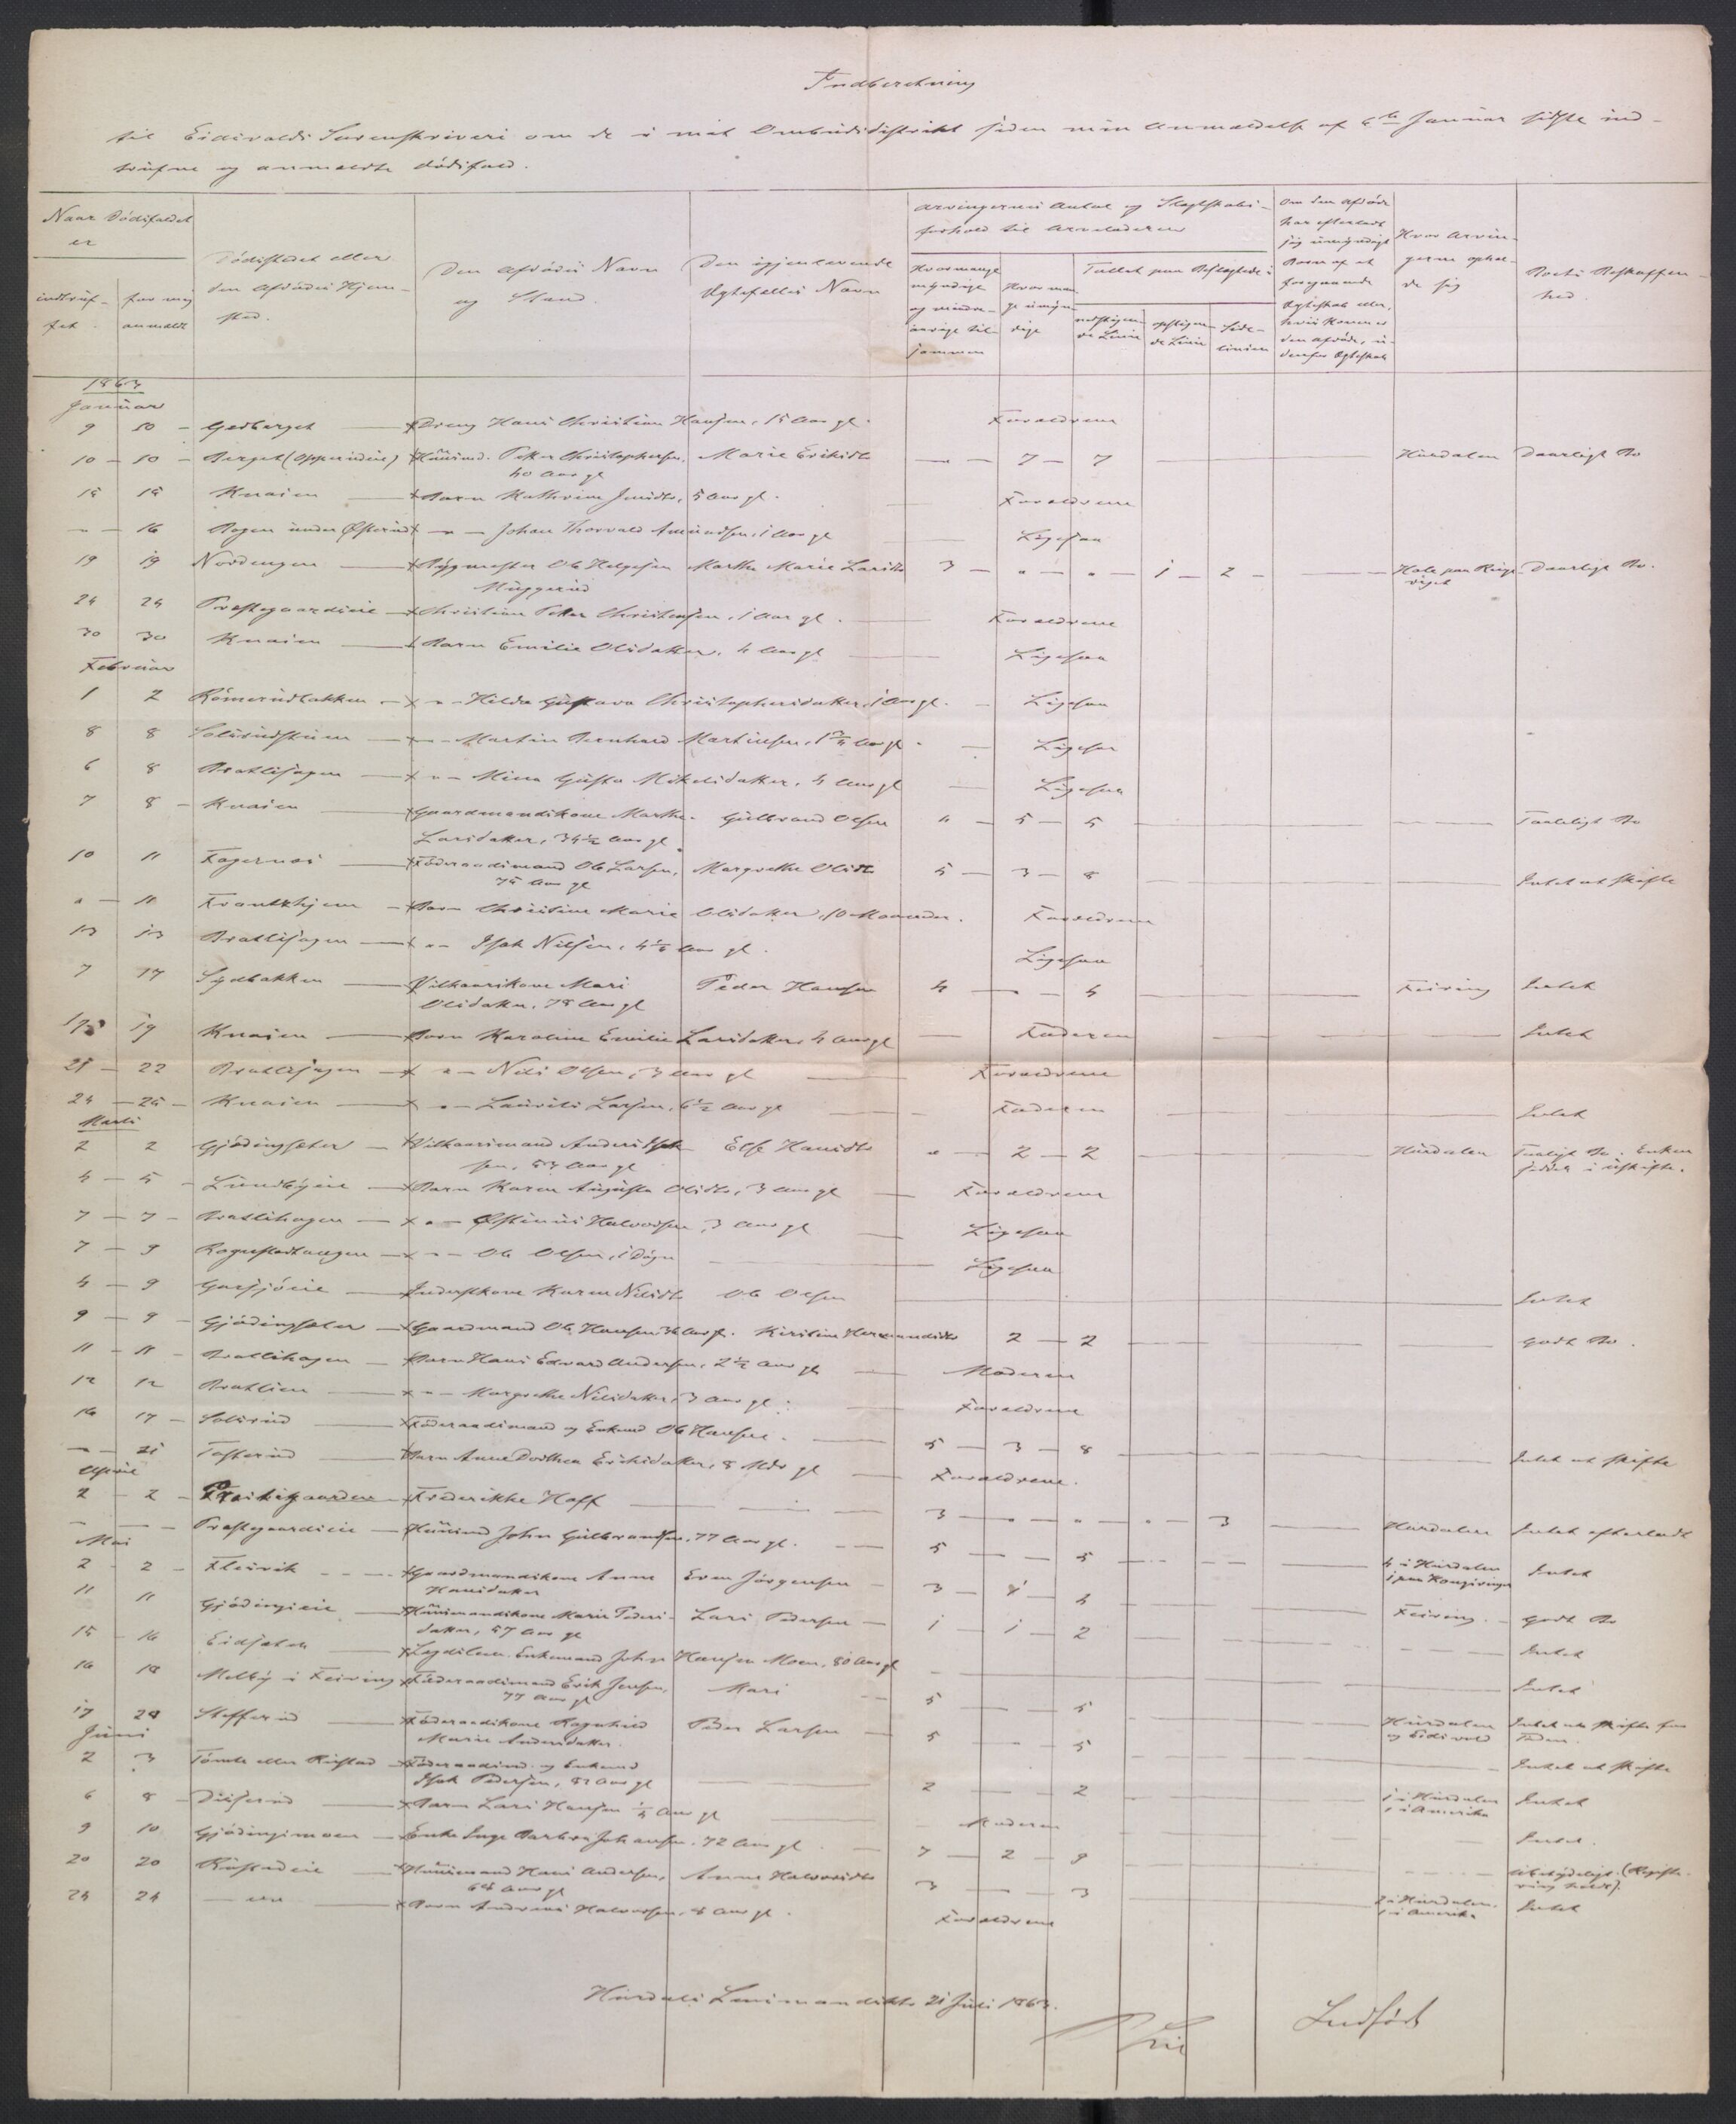 Indberetning
til Eidsvolds Sorenskriveri om de i mit Ombudsdistrikt siden min Anmeldelse af 6te Januar sidste ind-
trufne og anmeldte Dødsfald.
Naar Dødsfaldet er
indtruf-fet
for mig anmeldt
Dødsstedet eller den Afdødes Hjem-sted.
Den Afdødes Navn og Stand.
Den igjenlevende Ægtefælles Navn
Arvingernes Antal og Slægtskabs-forhold til Arveladeren
Hvormange myndige og mindre-aarige til-sammen
Hvor man-ge umyn-dige
Tallet paa Beslægtede i
nedstigen-de Linie
opstigen-de Linie
Side-linien
Om den Afdøde har efterladt sig umyndige Børn af et foregaaende Ægteskab eller, hvis Konen er den afdøde, u-denfor Ægteskab
Hvor Arvin-gerne ophol-de sig
Boets Beskaffen-hed.
1863
Januar
9 10 - Gjødberget - Dreng Hans Christian Hansen, 15 Aar gl. Forældrene
10 - 10 - Berget (Opperudeie) Huusmd. Peter Christophersen, 40 Aar gl Marie Eriksdtr - 7 - 7 - Hurdalen Daarligt Bo
15 15 Knaien - Barn Kathrine Jensdtr, 5 Aar gl. Forældrene
" - 16 Bogen under Østerud - " - Johan Thorvald Amundsen, 1 Aar gl Ligesaa
19 19 Nordengen - Bygmester Ole Helgesen Muggerud Marthe Marie Larsdtr 3 - " - " - 1 - 2 - Hole paa Ringe-riget Daarligt Bo.
24 24 Præstegaardseie - Christian Peter Christensen, 1 Aar gl. Forældrene
30 30 Knaien - Barn Emilie Olsdatter, 4 Aar gl Ligesaa
Februar
1 2 Rømerudbakken - " - Hilda Gustava Christophersdatter, 1 Aar gl. - Ligesaa
8 8 - " - Martin Bernhard Martinsen, 1 3/4 Aar gl. - Ligesaa
6 8 Bratlihagen - " - Mina Gusta Mikelsdatter, 4 Aar gl - Ligesaa
7 8 - Knaien - Gaardmandskone Marthe Larsdatter, 34 1/2 Aar gl. Gulbrand Olsen " - 5 - 5 - Taaleligt Bo
10 11 Fagernæs - Føderaadsmand Ole Larsen, 75 Aar gl Margrethe Olsdtr 5 - 3 - 8 - Intet at skifte
" - 11 - Barn Christine Marie Olsdatter, 10 Maaneder. Forældrene
13 13 Bratlihagen - " - Isak Nilsen, 4 1/2 Aar gl. Ligesaa
7 17 Sydbakken - Vilkaarskone Mari Olsdatter, 78 Aar gl Peder Hansen 4 - - 4 - Feiring Intet
19 Knaien - Barn Karoline Emilie Larsdatter, 4 Aar gl - Faderen - Intet
21 - 22 Bratlihagen - " - Nils Olsen, 3 Aar gl - Forældrene
24 - 25 - Knaien - " - Laurits Larsen, 6 1/2 Aar gl - Faderen - Intet
Marts
2 2 Gjødingsæter - Vilkaarsmand Anders Isak-sen, 53 Aar gl Else Hansdtr " - 2 - 2 Hurdalen Taaligt Bo. Enken sidder i uskifte.
4 - 5 - Lundbyeie - Barn Karen Augusta Olsdtr, 3 Aar gl - Forældrene
7 - 7 - Bratlihagen - " - Østinus Halvorsen, 3 Aar gl - Ligesaa
7 - 9 Rognstadhaugen - " - Ole Olsen, 1 Døgn - Ligesaa
4 - 9 Garsjøeie - Inderstkone Karen Nilsdtr Ole Olsen - Intet
9 - 9 - Gjødingsæter - Gaardmand Ole Hansen 36 Aar gl. Kirstine Hermandsdtr 2 - 2 - Godt Bo.
11 - 11 - Bratlihagen - Barn Hans Edvard Andersen, 2 1/2 Aar gl - Moderen
12 12 Bratlien - " - Margrethe Nilsdatter, 3 Aar gl. - Forældrene
16 17 - Solsrud - Føderaadsmand og Enkemd Ole Hansen. - 5 - 3 - 8 - Intet at skifte
" - 21 Tofterud - Barn Anne Dorthea Eriksdatter, 8 Mdr gl - Forældrene.
April
2 - 2 - - Frederikke Hoff - 3 - " - " - " - 3 - Hurdalen Intet efterladt
- - - Præstegaardseie - Huusmd John Gulbrandsen, 77 Aar gl. - 5 - - 5 - 4 i Hurdalen 1 paa Kongsvinger Intet
Mai
2 - 2 - Fleisvik - Gaardmandskone Anne Hansdatter Even Jørgensen - 3 - - 4 - Feiring - Godt Bo
11 11 Gjødingseie - Huusmandskone Marie Peders-datter, 57 Aar gl Lars Pedersen - 1 - 1 - 2 - Intet
15 - 16 Eidsæteh - Lægdslem. Enkemand John Hansen Moen, 80 Aar gl - Intet
16 18 Melby i Feiring - Føderaadsmand Erik Jensen, 77 Aar gl Mari - 5 - 5 - Hurdalen og Eidsvold Intet at skifte for Tiden.
17 28 Stefferud - Føderaadskone Ragnhild Marie Andersdatter. Peder Larsen - 5 - 5 - Intet at skifte
Juni
2 3 Tømte eller Rustad - Føderaadsmd. og Enkemd Isak Pedersen, 82 Aar gl - 2 - 2 - 1 i Hurdalen 1 i Amerika Intet
6 8 - Barn Lars Hansen 1/4 Aar gl - Moderen - Intet.
9 10 Gjødingsmoen - Enke Inge Barbra Johansdtr. 72 Aar gl. 7 - 2 - 9 - Ubetydeligt. (Registre-ring holdt).
20 20 Rustadeie - Huusmand Hans Andersen, 68 Aar gl Anne Halvorsdtr 3 - - 3 - 2 i Hurdalen. 1 i Amerika Intet
24 24 - " - Barn Andreas Halvorsen, 8 Aar gl. Forældrene
Hurdals Lensmandskt 21 Juli 1863.
Indført